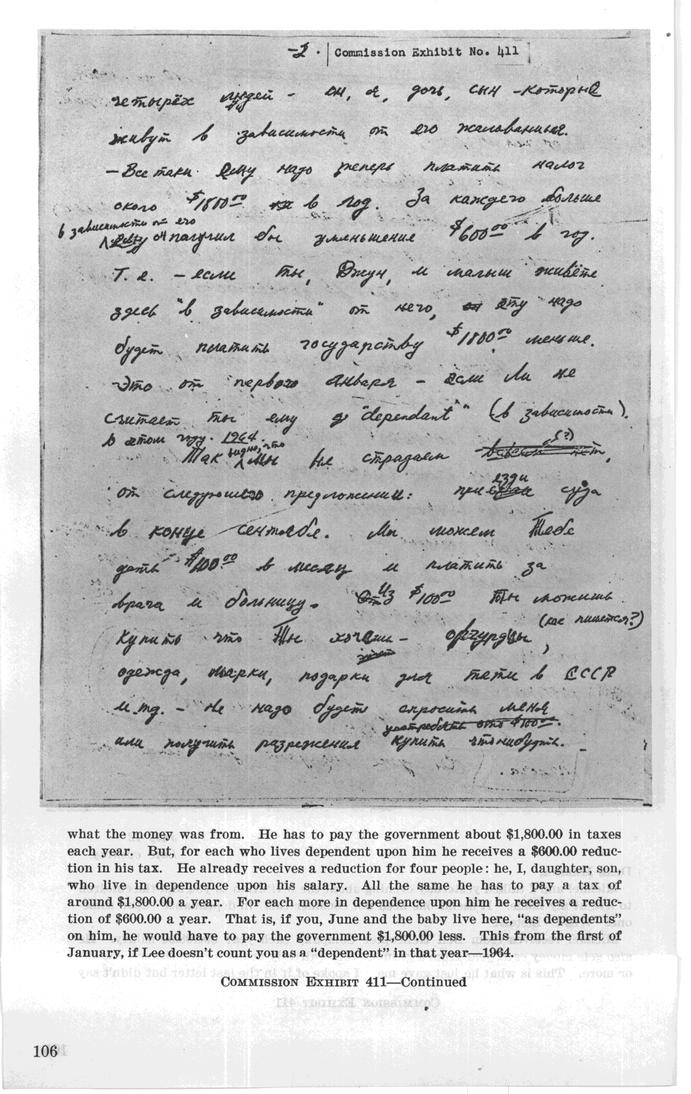 -2. Commission Exhibit No. 411
четырёх людей - он, я, дочь, сын - которые
живут в зависимости от его жалованния.
- Все таки ему надо теперь платить налог
около $1800.00 в год. За каждего больше
в зависимости от его
он получил бы уменьшение $600.00 в год.
Т. е. - если ты, Джун, и малыш живёте
здесь "в зависимости" от него, ему надо
будет платить государству $1800.00 меньше.
Это от первого Января - если Ли не
считает ты ему "dependant" (в зависимости).
в этом году. 1964.
Так видно, что мы не страдаем
от следующего предложения: приезди суда
в конце сентября. Мы можем Тебе
дать $100.00 в месяц и платить за
врача и больницу. Из $100.00 Ты можишь
(как пишется?)
купить что Ты хочеш - огурцы,
одежда, марки, подарки для тети в СССР
и.т.д. - не надо будет спросить меня
или получить разрежения купить что нибудть.
what the money was from. He has to pay the government about $1,800.00 in taxes
each year. But, for each who lives dependent upon him he receives a $600.00 reduc-
tion in his tax. He already receives a reduction for four people: he, I, daughter, son,
who live in dependence upon his salary. All the same he has to pay a tax of
around $1,800.00 a year. For each more in dependence upon him he receives a reduc-
tion of $600.00 a year. That is, if you, June and the baby live here, "as dependents"
on him, he would have to pay the government $1,800.00 less. This from the first of
January, if Lee doesn't count you as a "dependent" in that year—1964.
COMMISSION EXHIBIT 411—Continued
106